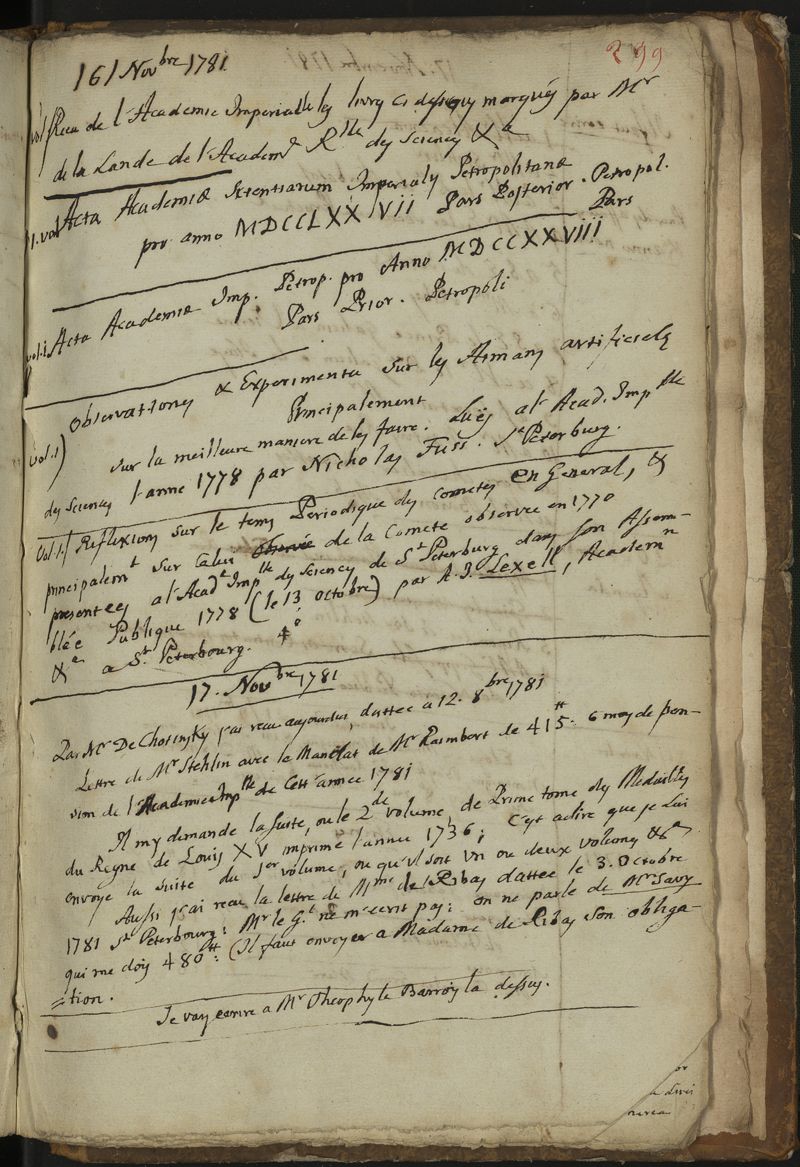 299
16 Nov.bre 1781
Receu de l'Academie Imperialle les livres ci dessous marqués par Mr
de la Lande de l'Academ.e R.lle des Sciences &a
1. vol Acta Academiæ Scientiarum Imperialis Petropolitanæ
pro anno MDCCLXXVII Pars Posterior. Petropol.
Pars
vol.1 Acta Academiæ Imp. Petrop. pro Anno MDCCXXVIII
Pars Prior. Petropoli
Observationes & Experimenta sur les Aimans artificiels
Principalement
vol.1) sur la meilleure maniere de les faire. Luës a l'Acad. Imp.lle
des Sciences l'anne 1778 par Nicholas Fuss. St Peterburg.
Vol.1. Reflexions sur le tems Periodique des cometes en General, &
principalemt sur calui observée de la Comete observée en 1770
presentées a l'Acade Imp.lle des Sciences de St Peterburg dans son Assem-
blée Publique 1778 (le 13 octobre) par A. J. Lexell, Academn
&a a St Peterbourg. 4o
17. Nov.bre 1781
Par Mr De Chotinsky j'ai receu aujourdui, dattée a 12. 8bre 1781
Lettre de Mr Stehlin avec le Mandat de Mr Raimbert de 415tt: 6 moys de pen-
sion de l'Academie Imp.lle de cett'année 1781
Il my demande la suite, ou le 2de volume, de Prime tome des Medailles
du Regne de Louis XV imprimé l'annee 1736; c'est adire que je lui
envoye la suite du 1er volume, ou qu'il soit un ou deux volumes &a
Aussi j'ai receu la lettre de Mme de Ribas dattée le 3. Octobre
1781 St Peterbourg: Mr le Gl ne m'ecrit pas: on ne parle de Mr Savy
qui me dois 480tt: (Il faut envoyer a Madame de Ribas son obliga-
=tion.
Je vay ecrire a Mr Theophyle Barrois la dessus.